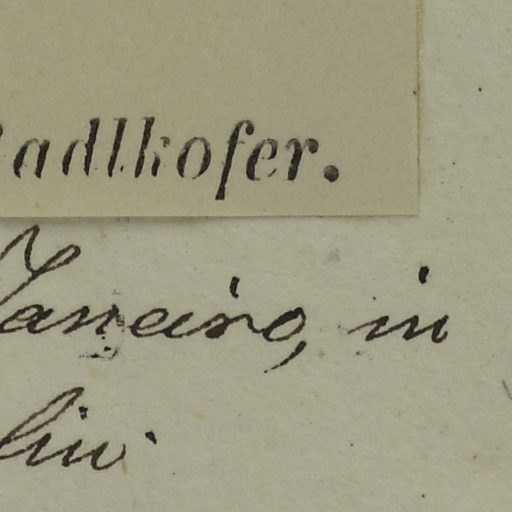 Radlkofer.
Janeiro, in
lin.